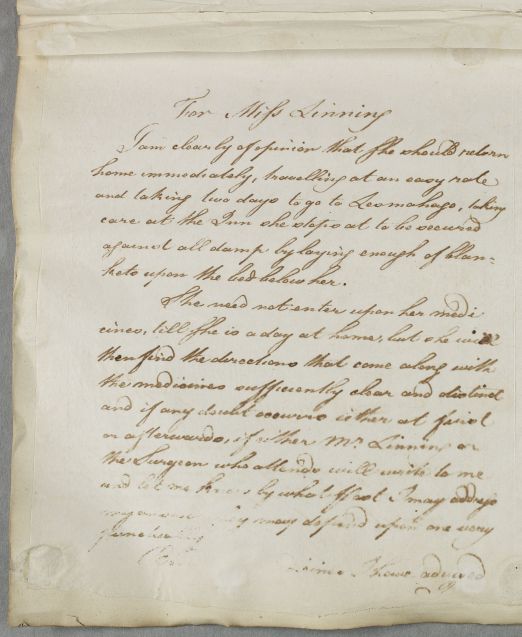 For Miss Linning
I am clearly of opinion that She should return
home immediately, travelling at an easy rate
and taking two days to go to Lesmahago, taking
care at the Inn she stops at to be secured
against all damp by laying enough of blan-
kets upon the bed below her.
She need not enter upon her medi
cines, till She is a day at home, but she will
then find the directions that come along with
the medicines sufficiently clear and distinct
and if any doubt occurrs either at first
or afterwards, if either Mr. Linning or
the Surgeon who attends will write to me
and let me know by what Post I may address
my answer they may depend upon one very
punctually
I have advised